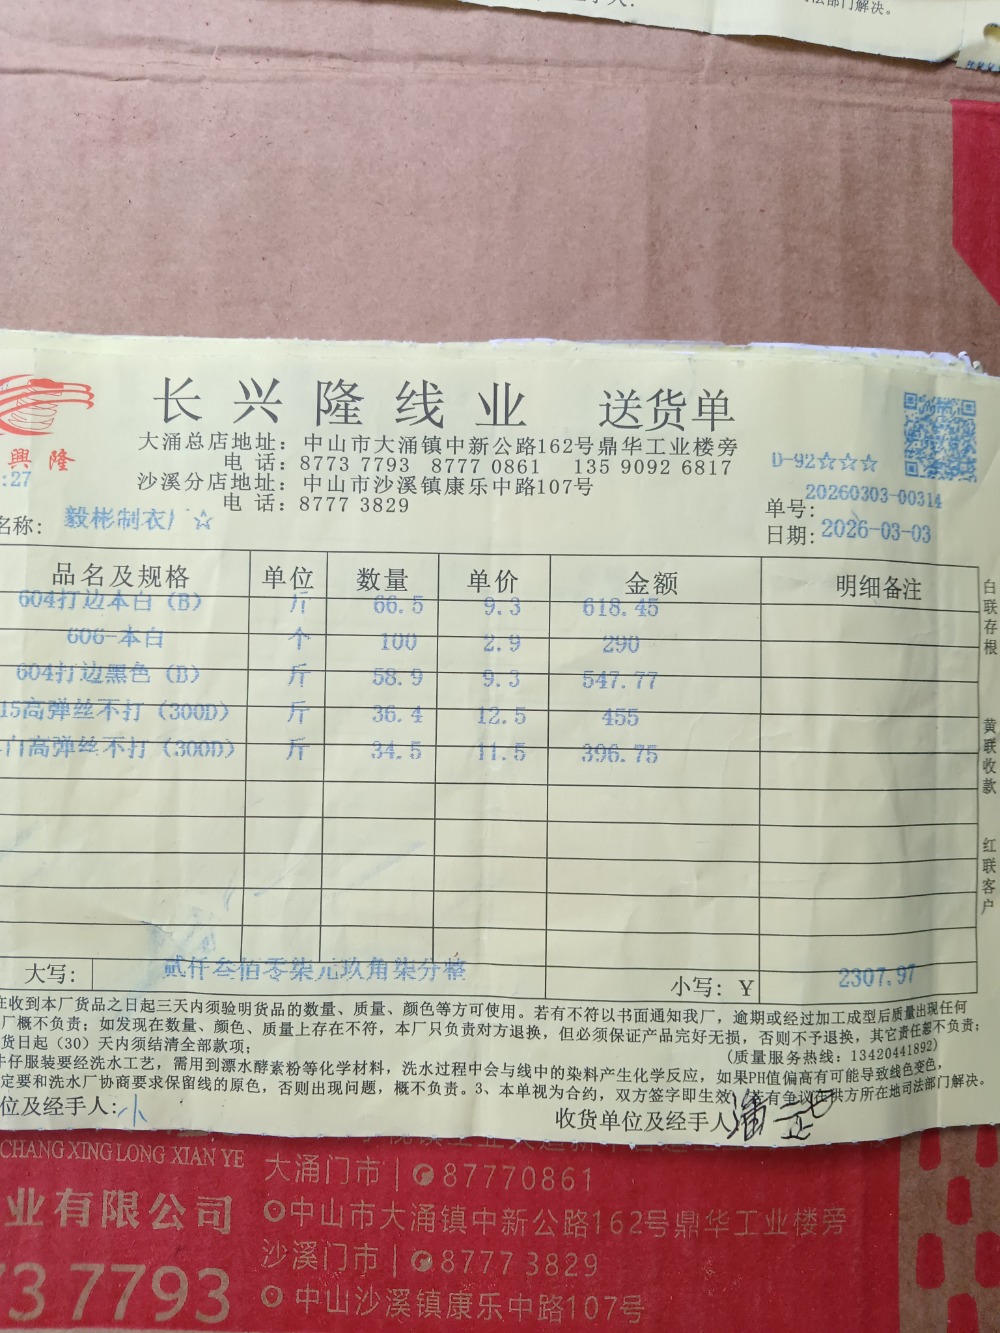 部门解决。
长兴隆线业 送货单
興隆
大涌总店地址：中山市大涌镇中新公路162号鼎华工业楼旁
电 话：8773 7793 8777 0861 135 9092 6817
D-92☆☆☆
沙溪分店地址：中山市沙溪镇康乐中路107号
:27
电 话：8777 3829
单号：20260303-00314
名称：毅彬制衣厂☆
日期：2026-03-03
品名及规格 单位 数量 单价 金额 明细备注
604打边本白（B） 斤 66.5 9.3 618.45
606-本白 个 100 2.9 290
604打边黑色（B） 斤 58.9 9.3 547.77
15高弹丝不打（300D） 斤 36.4 12.5 455
高弹丝不打（300D） 斤 34.5 11.5 396.75
白联存根
黄联收款
红联客户
大写：贰仟叁佰零柒元玖角柒分整 小写：Y 2307.97
在收到本厂货品之日起三天内须验明货品的数量、质量、颜色等方可使用。若有不符以书面通知我厂，逾期或经过加工成型后质量出现任何
厂概不负责；如发现在数量、颜色、质量上存在不符，本厂只负责对方退换，但必须保证产品完好无损，否则不予退换，其它责任恕不负责；
货日起（30）天内须结清全部款项； （质量服务热线：13420441892）
牛仔服装要经洗水工艺，需用到漂水酵素粉等化学材料，洗水过程中会与线中的染料产生化学反应，如果PH值偏高有可能导致线色变色，
定要和洗水厂协商要求保留线的原色，否则出现问题，概不负责。3、本单视为合约，双方签字即生效，若有争议在供方所在地司法部门解决。
位及经手人：小 收货单位及经手人 潘
CHANG XING LONG XIAN YE
大涌门市 | 87770861
业有限公司
中山市大涌镇中新公路162号鼎华工业楼旁
沙溪门市 | 8777 3829
73 7793
中山沙溪镇康乐中路107号